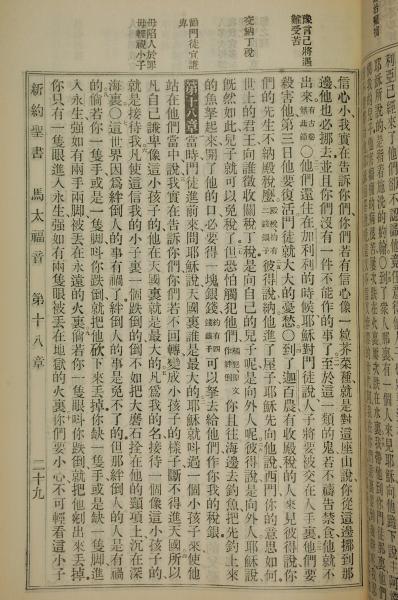 豫言己將遇
難受苦
交納丁稅
信心小我實在告訴你們你們若有信心像一粒芥菜種就是對這座山說你從這邊挪到那
邊他也必挪去並且你們沒有一件不能作的事了至於這一類的鬼若不禱告禁食他就不
出來有古卷無此節○他們還住在加利利的時候耶穌對門徒說人子將要被交在人手裏他們要
殺害他第三日他要復活門徒就大大的憂愁○到了迦百農有收殿稅的人來見彼得說你
們的先生不納殿稅麼殿稅約有二錢銀子彼得說納他進了屋子耶穌先向他說西門你的意思如何
世上的君王向誰徵收關稅丁稅是向自己的兒子呢是向外人呢彼得說是向外人耶穌說
旣然如此兒子就可以免稅了但恐怕觸犯他們觸犯原文作絆倒你且往海邊去釣魚把先釣上來
的魚拏起來開了他的口必要得一塊銀錢約有四錢銀子可以拏去給他們作你我的稅銀
勸門徒宜謙
卑
毋陷人於罪
毋輕視小子
第十八章當時門徒進前來問耶穌說天國裏誰是最大的耶穌就叫過一個小孩子來使他
站在他們當中說我實在告訴你們你們若不回轉變成小孩子的樣子斷不得進天國所以
凡自己謙卑像這小孩子的他在天國裏就是最大的凡爲我的名接待一個像這小孩子的
就是接待我凡使這信我的小子裏一個跌倒的倒不如把大磨石拴在他的頸項上沉在深
海裏○這世界因爲絆倒人的事有禍了絆倒人的事是免不了的但那絆倒人的人是有禍
的倘若你一隻手或是一隻脚呌你跌倒就把他砍下來丟掉你缺一隻手或是缺一隻脚進
入永生强如有兩手兩脚被丟在永遠的火裏倘若你一隻眼呌你跌倒就把他剜出來丟掉
你只有一隻眼進入永生强如有兩隻眼被丟在地獄的火裏你們要小心不可輕看這小子
新約聖書 馬太福音 第十八章 二十九